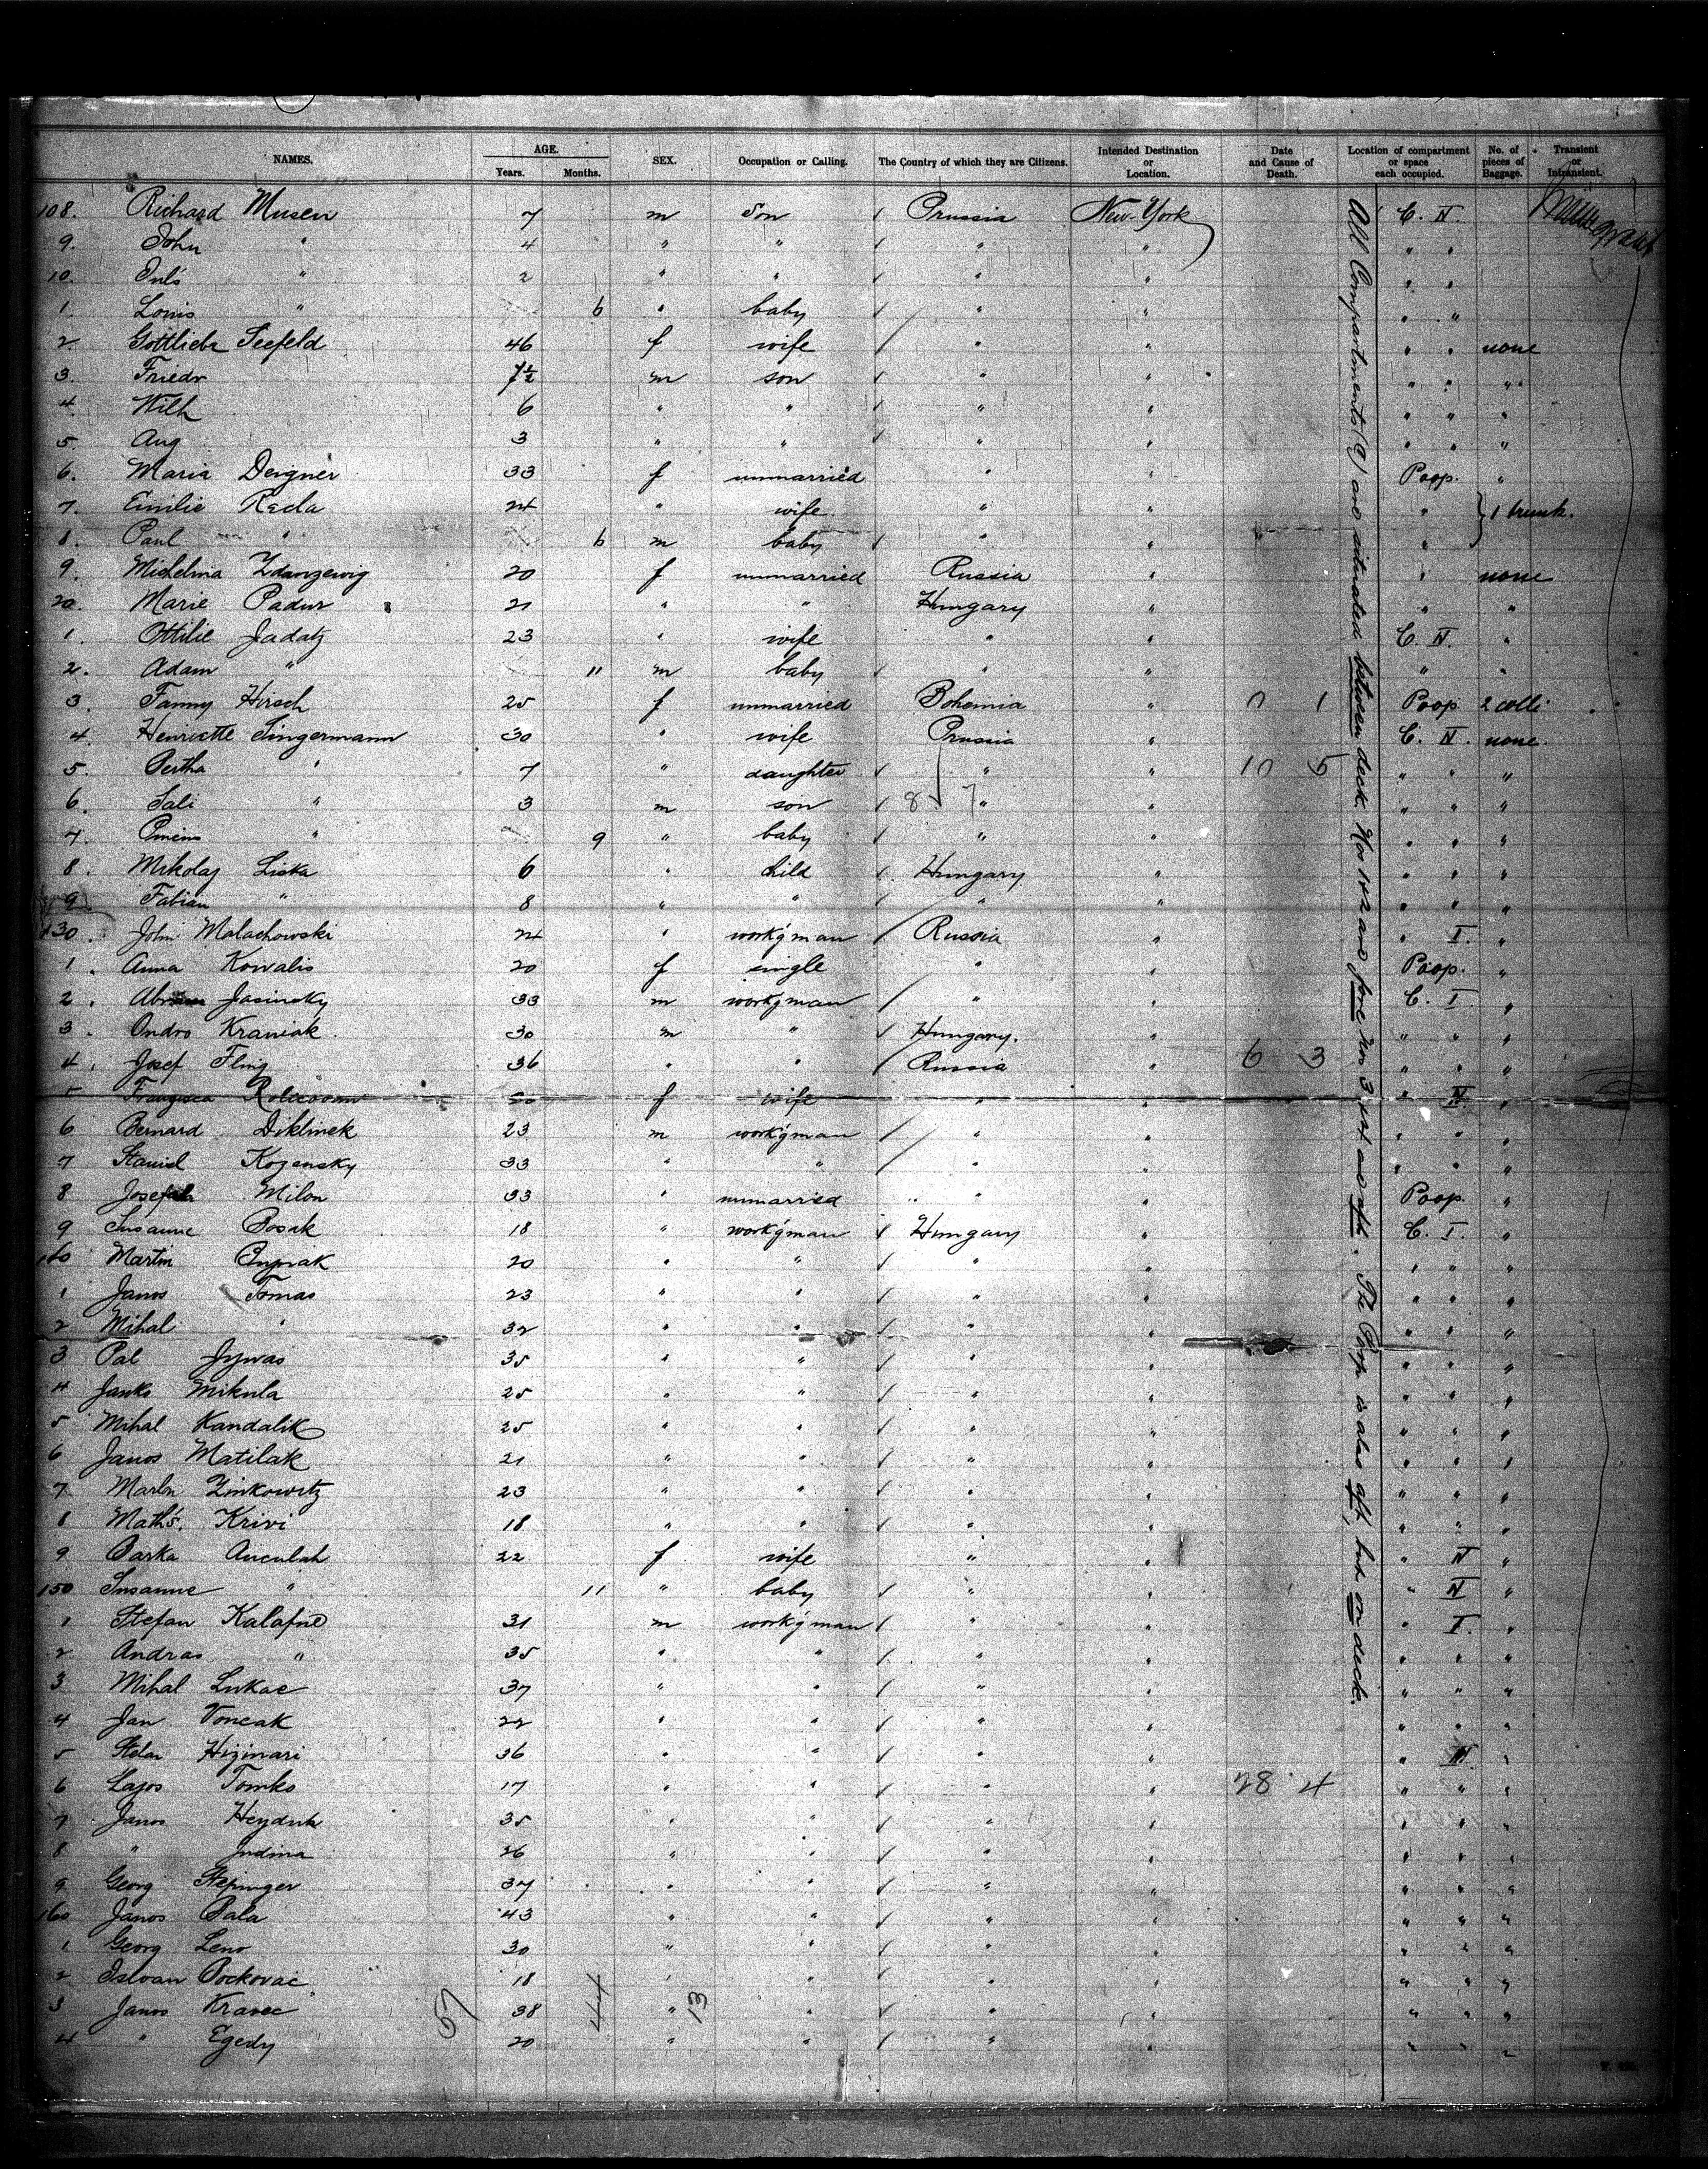 NAMES. AGE. Years. Months. SEX. Occupation or Calling. The Country of which they are Citizens. Intended Destination or Location. Date and Cause of Death. Location of compartment or space each occupied. No. of pieces of Baggage. Transient or Intransient.
108. Richard Musen 7 m Son Prussia New-York C. IV.
9. John " 4 " " " " " "
10. " 2 " " " " " "
1. Louis " 6 " baby " " " "
2. Gottliebe Seefeld 46 f wife " " " " none
3. Friedr 7½ m son " " " " "
4. Wilh 6 " " " " " " "
5. Aug 3 " " " " " " "
6. Maria Deigner 33 f unmarried " " Poop. "
7. Emilie Reda 24 " wife " " " } 1 trunk.
8. Paul " 6 m baby " " "
9. Michelina 20 f unmarried Russia " " none
20. Marie Padur 21 " " Hungary " " "
1. Ottilie Jadatz 23 " wife " " C. IV. "
2. Adam " 11 m baby " " " "
3. Fanny Hirsch 25 f unmarried Bohemia " 0 1 Poop 2 colli
4. Henriette Singermann 30 " wife Prussia " C. IV. none.
5. Bertha " 7 " daughter " " 10 5 " " "
6. Sali " 3 m son 8 7 " " " " "
7. " 9 " baby " " " " "
8. Mikolaj Liska 6 " child Hungary " " " "
9. Fabian " 8 " " " " " " "
130. John Malachowski 24 " workg'man Russia " " I. "
1. Anna Kowalis 20 f single " " Poop. "
2. Jasinsky 33 m workg'man " " C. I. "
3. Ondro Kraniak. 30 m " Hungary. " " " "
4. Josef Fling 36 " " Russia " 6 3 " " "
5 f wife " " " IV. "
6 Bernard Diklinek 23 m workg'man " " " " "
7 Kozensky 33 " " " " " " "
8 Milon 33 " unmarried " " Poop. "
9 Susanne Bosak 18 " workg'man Hungary " C. I. "
Martin 20 " " " " " " "
1 Janos Tomas 23 " " " " " " "
2 Mihal " 32 " " " " " " "
3 Pal 35 " " " " " " "
4 Janko Mikula 25 " " " " " " "
5 Mihal Kandalik 25 " " " " " " "
6 Janos Matilak 21 " " " " " " "
7 Zinkowitz 23 " " " " " " "
8 Krivi 18 " " " " " " "
9 Barka 22 f wife " " " IV "
150 Susanne " 11 " baby " " " IV "
1 Stefan 31 m workg'man " " " I. "
2 Andras " 35 " " " " " " "
3 Mihal Lukac 37 " " " " " " "
4 Jan Voncak 22 " " " " " " "
5 36 " " " " " "
6 Lajos Tomko 17 " " " " 28 4 " " "
7 Janos Heyduk 35 " " " " " " "
8 " Judina 26 " " " " " " "
9 Georg 37 " " " " " " "
160 Janos Bala 43 " " " " " " "
1 Georg Leno 30 " " " " " " "
2 Istvan Bockovac 18 " " " " " " "
3 Janos Kravec 38 " " " " " " "
4 " Egedy 20 " " " " " " "
57 44 13
All Compartments (C) are situated between deck. Nos 1+2 are fore, Nos 3+4 are aft. The Poop is also aft, but on deck.